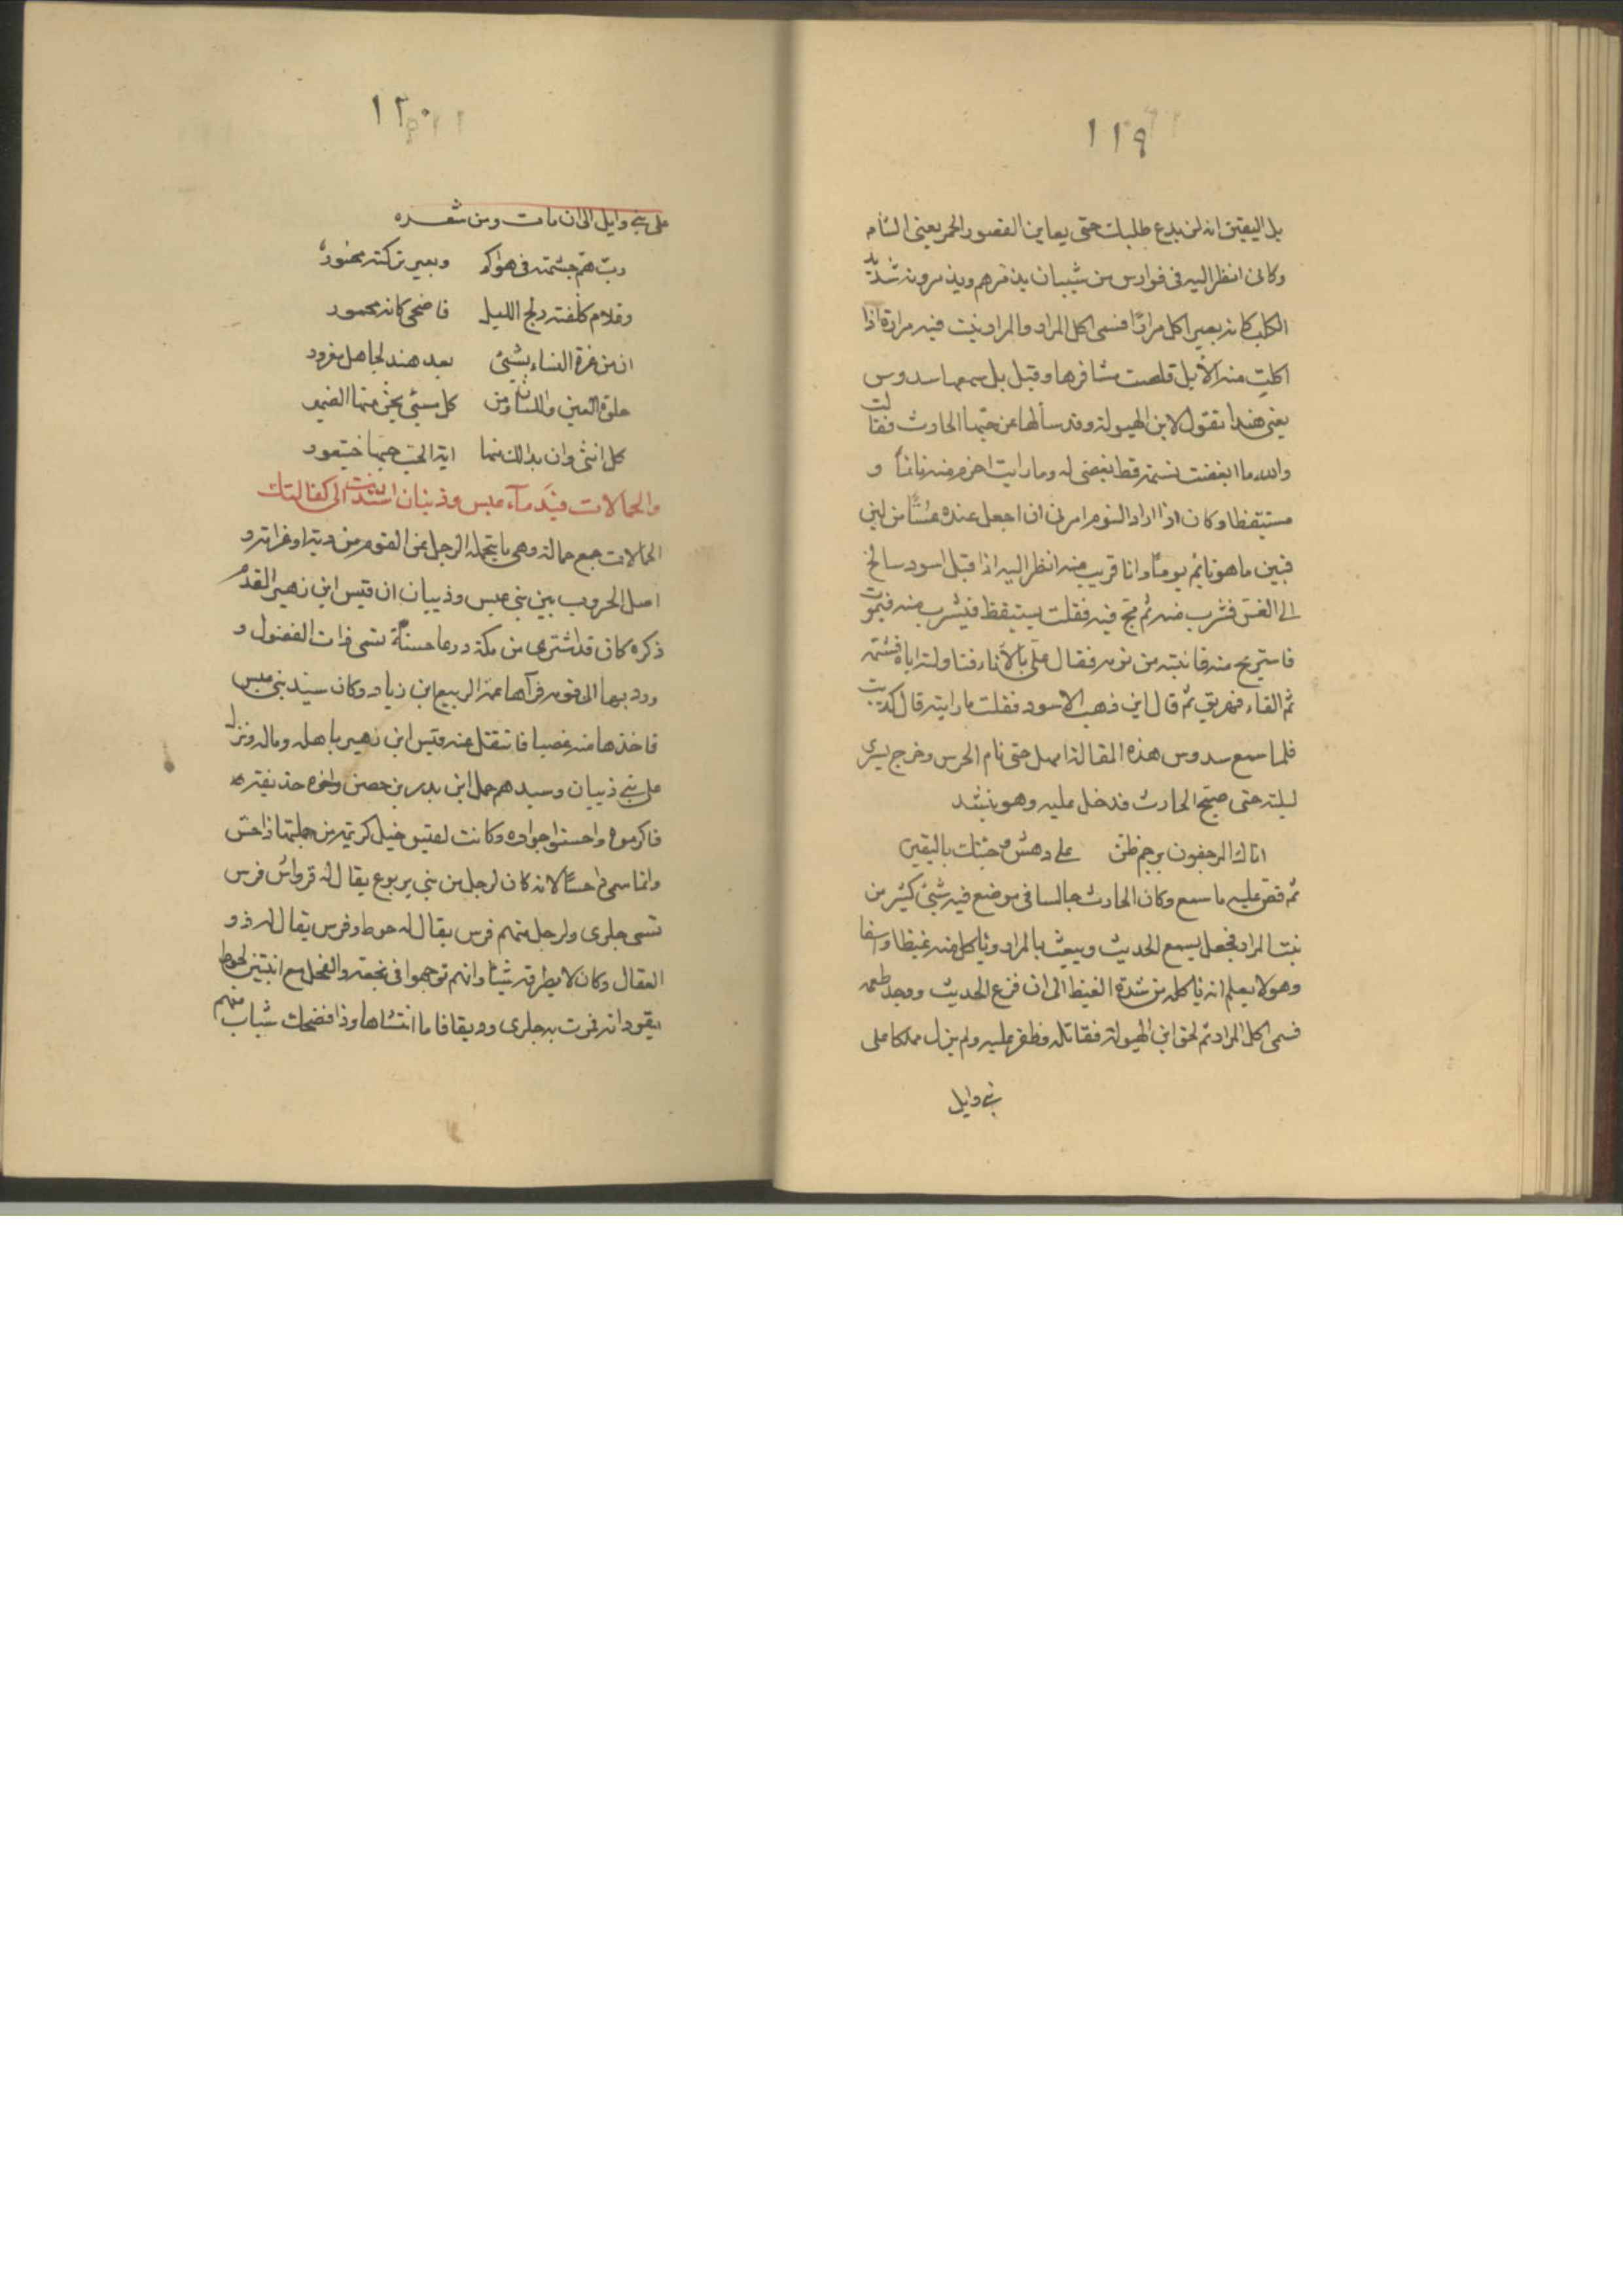 ١١٩
بل اليقين انه لن يدع طلبك حتى يعاين القصور الحمر يعنى الشام
وكانى انظر اليه فى فوارس من شيبان يذمرهم ويذمرونه شديد
الكلب كانه بعير اكل مرارا فسمى اكل المرار والمرار نبت فيه مرارة اذا
اكلت منه الأبل قلصت مشافرها وقيل بل سمعها سدوس
يعنى هندا تقول لابن الهيولة وقد سألها عن حبها الحارث فقالت
والله ما ابغضت نسمة قط بغضى له وما رايت احزم منه نائماً و
مستيقظا وكان اذا اراد النوم امرنى ان اجعل عنده عسًا من لبن
فبين ما هو نائم يومًا وانا قريب منه انظر اليه اذا قبل اسود سالخ
الى العس فشرب منه ثم مج فيه فقلت يستيقظ فيشرب منه فيموت
فاستريح منه فانتبه من نومه فقال علىّ بالأناء فناولته اياه فشمه
ثم القاه فهريق ثم قال اين ذهب الاسود فقلت ما رايته قال كذبت
فلما سمع سدوس هذه المقالة امهل حتى نام الحرس وخرج يسرى
ليلته حتى صبح الحارث فدخل عليه وهو ينشد
اتاك المرجفون برجم ظن على دهش وجئتك باليقين
ثم قص عليه ما سمع وكان الحارث جالسا فى موضع فيه شيئ كثير من
نبت المرار فجعل يسمع الحديث ويعبث بالمرار ويأكل منه غيظا واسفا
وهو لا يعلم انه يأكله من شدة الغيظ الى ان فرغ الحديث ووجد طعمه
فسمى اكل المرار ثم لحق ابن الهيولة فقاتله وظفر عليه ولم يزل مملكا على
بنى وايل
١٢٠
على بنى وايل الى ان مات ومن شعره
ربّ همّ جشمته فى هواكم وبعير تركته محسور
وغلام كلفته دلج الليل فاضحى كانه مخمور
ان من غرة النساء بشيئ بعد هند لجاهل مغرور
حلوة العين واللسان ومن كل شيئ يجن منها الضمير
كل انثى وان بدا لك منها اية الحب حبها خيتعور
والحمالات فى دمآء عبس وذبيان اسندت الى كفالتك
الحمالات جمع حمالة وهى ما يتحمله الرجل عن القوم من دية او غرامة و
اصل الحروب بين بنى عبس وذبيان ان قيس ابن زهير المقدم
ذكره كان قد اشترى من مكة درعا حسنة تسمى ذات الفضول و
ورد بها الى قومه فرآها عمه الربيع ابن زياد وكان سيد بنى عبس
فاخذها منه غصبا فانتقل عنه قيس ابن زهير باهله وماله ونزل
على بنى ذبيان وسيدهم حمل ابن بدر بن حصن واخوه حذيفة
فاكرموه واحسنوا جواره وكانت لقيس خيل كريمة من جملتها داحس
وانما سمى داحسًا لانه كان لرجل من بنى يربوع يقال له قرواش فرس
تسمى جلوى ولرجل منهم فرس يقال له حوط وفرس يقال له ذو
العقال وكان لا يطرقه شيئا وانهم توجهوا فى نجعة والفحل مع ابنتين لحوط
يقودانه فمرت به جلوى وديقا فلما انتشاها وذا فضحك شباب منهم